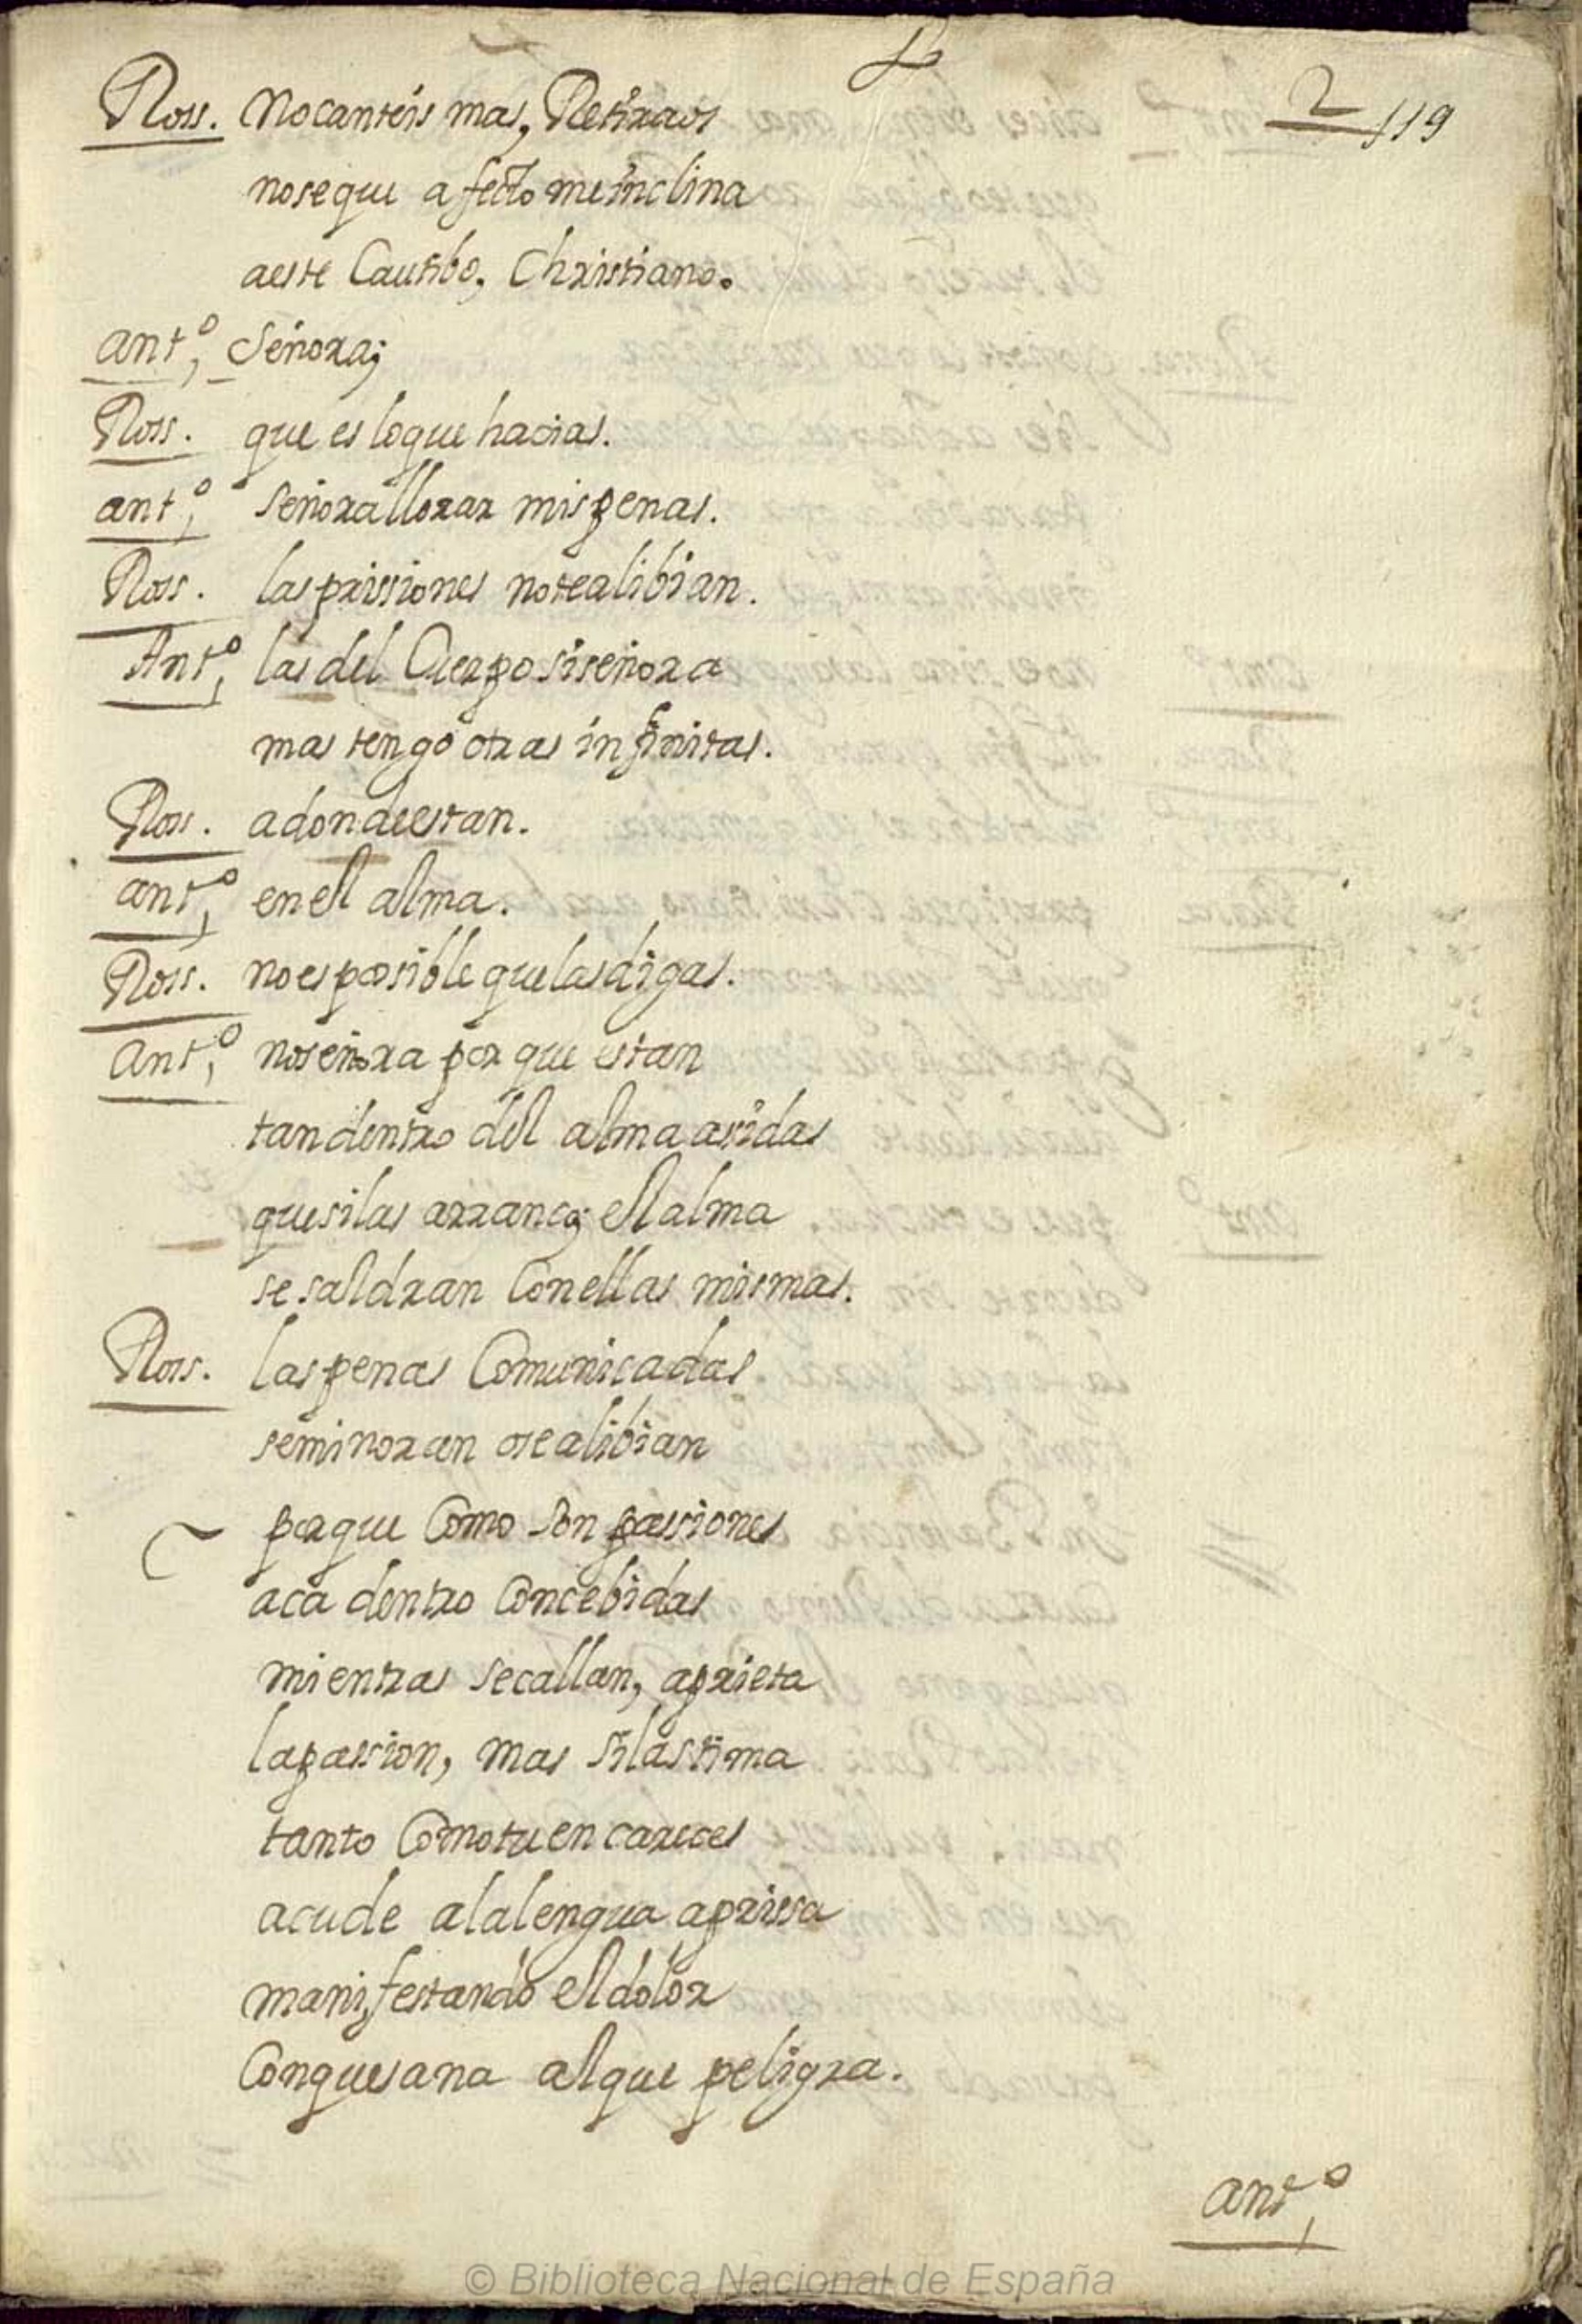 2 119
Ross. Nocanteis mas, Retiraos
nose que afecto meinclina
aeste Cautibo, Christiano.
antº, Señora;
Ross. que es loque hacias.
antº, señorallorar mispenas.
Ross. lasprissiones notealibian.
Antº, las del Cuerpo siseñora
mas tengo otras infinitas.
Ross. adondeestan.
antº, enel alma.
Ross. noesposible quelasdigas.
Antº, noseñora por que estan
tandentro del alma asidas
quesilas arranca; el alma
se saldran Conellas mismas.
Ross. laspenas Comunicadas
seminoran osealibian
porque Como son passiones
aca dentro Concebidas
mientras secallan, aprieta
lapassion, mas silastima
tanto Comotuencareces
acude alalengua apriessa
manifestando el dolor
Conquesana alque peligra.
antº,
© Biblioteca Nacional de España